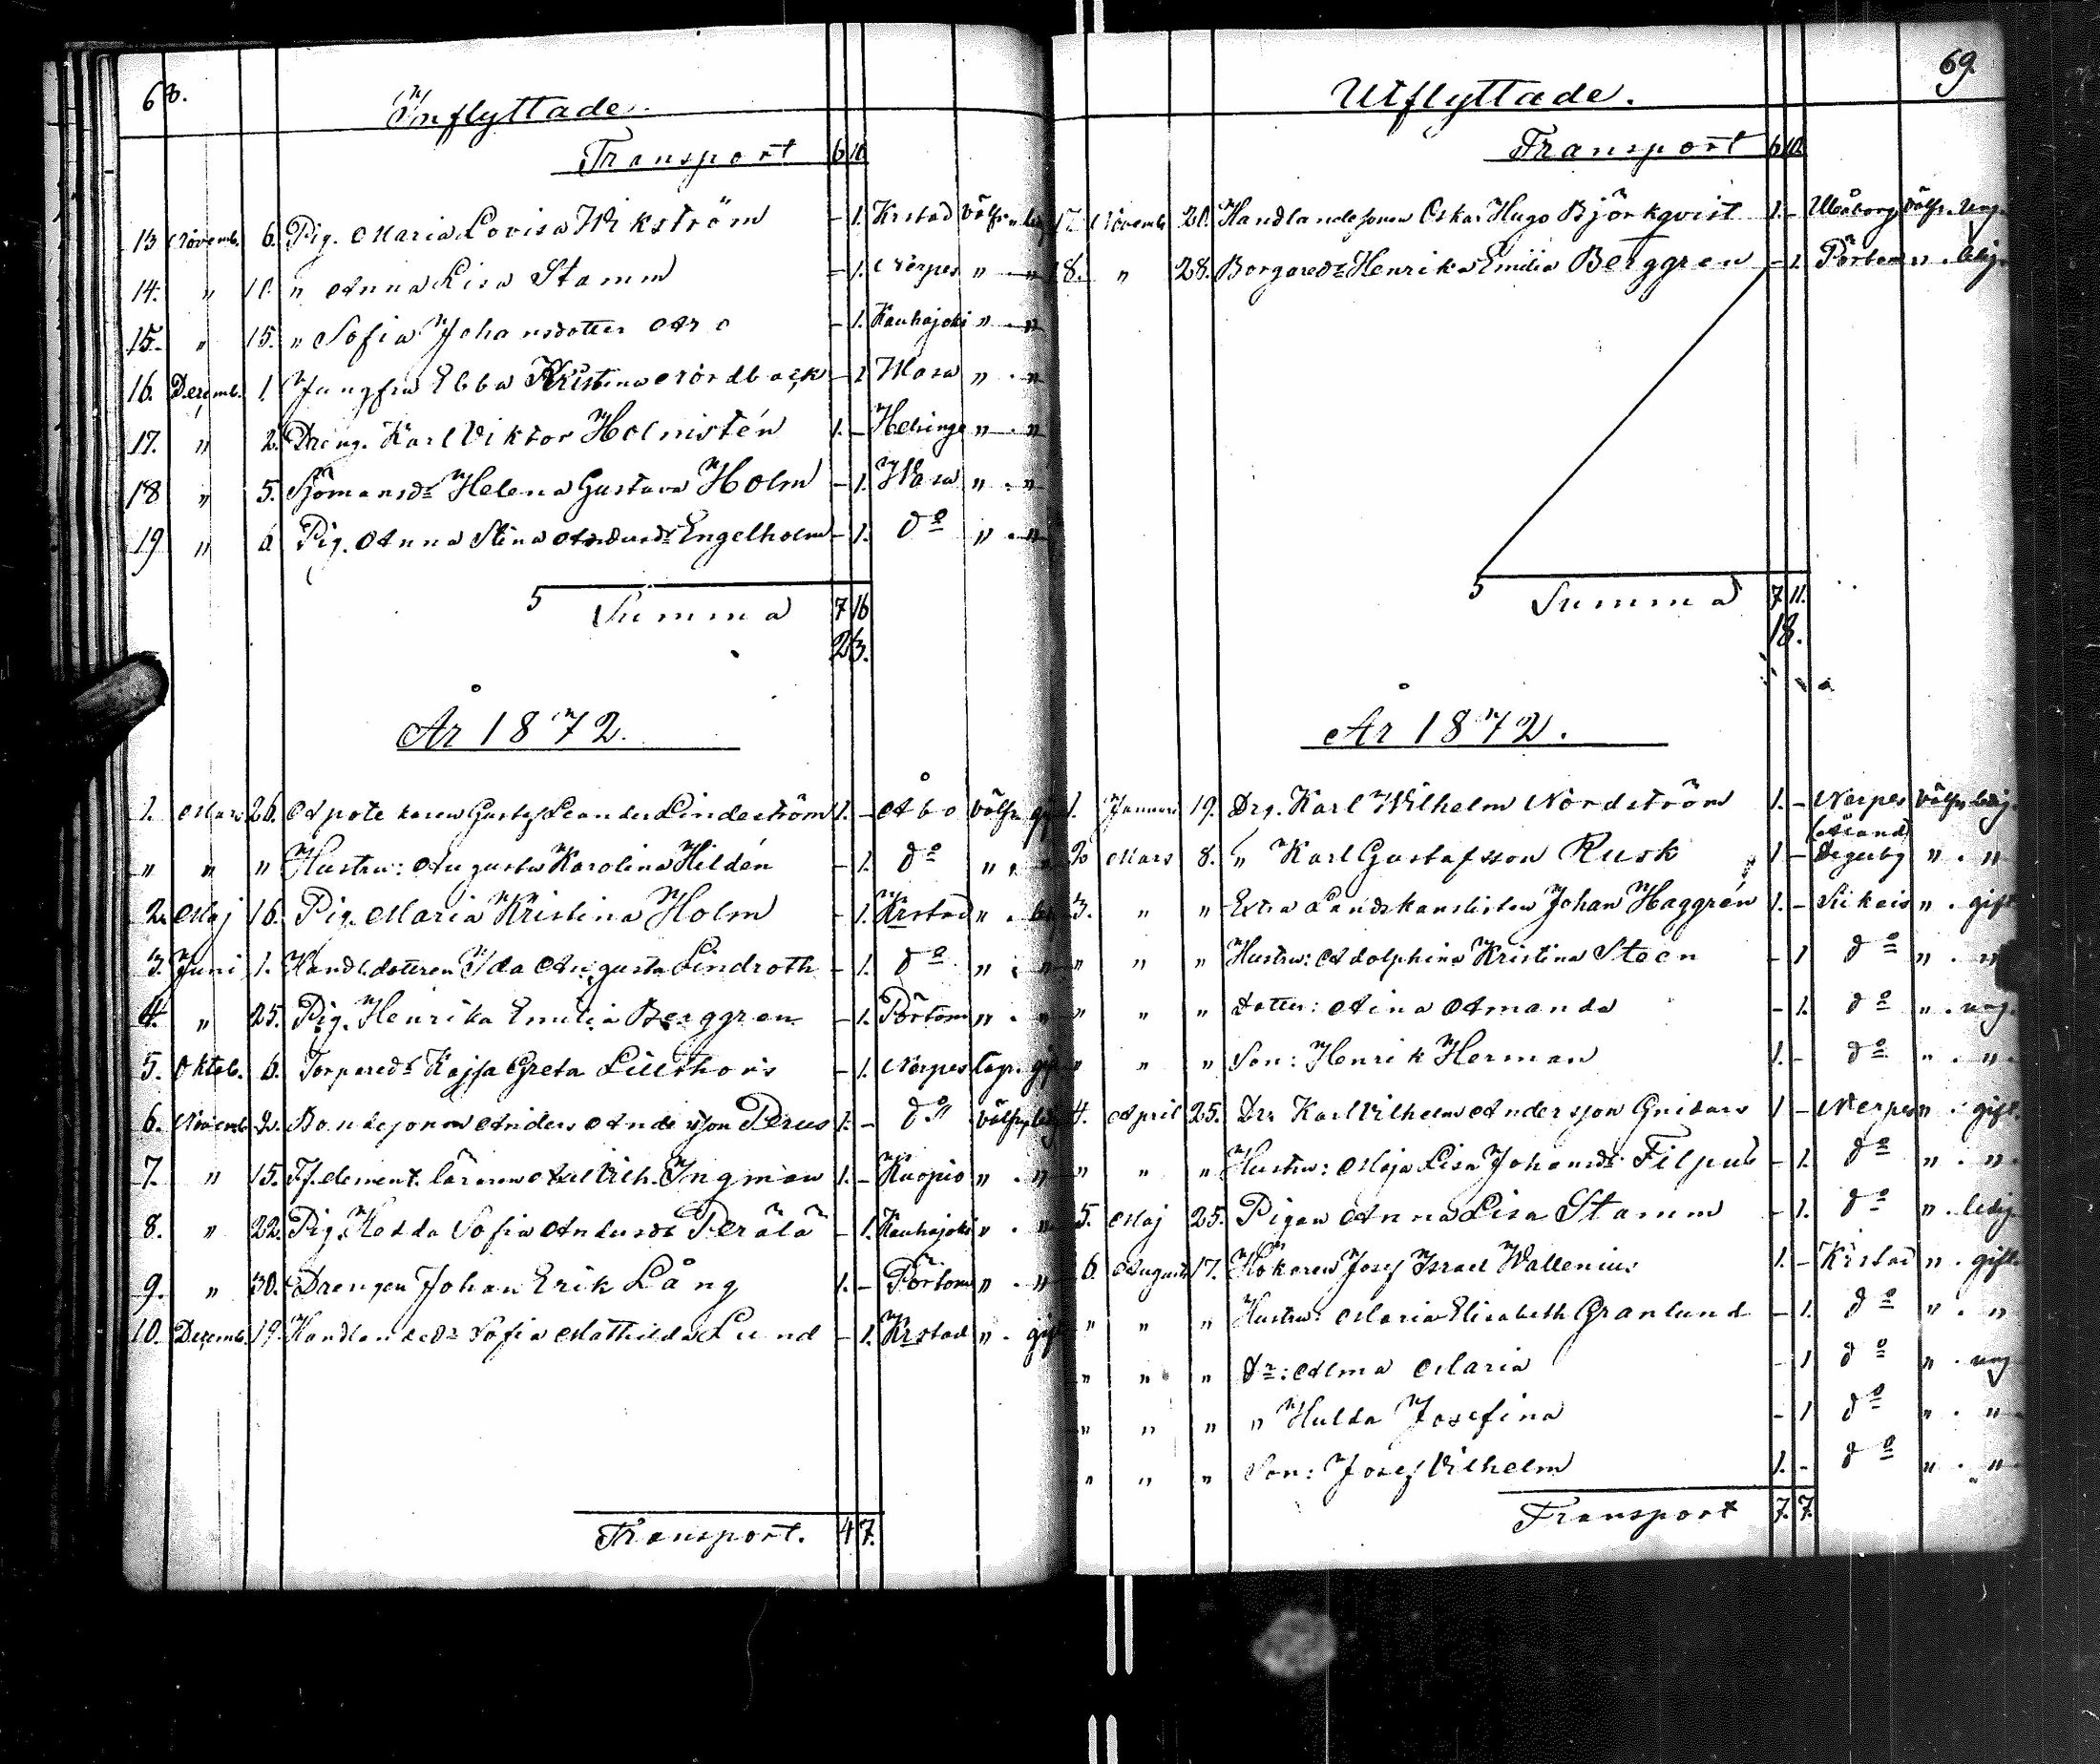 68.
Inflyttade.
Transport 6 10
13 Novemb. 6. Pig. Maria Lovisa Wikström - 1. Krstad välfr. ledig
14. " 11. " Anna Lisa Stamm - 1. Nerpes " "
15. " 15. " Sofia Johansdotter Aro - 1. Kauhajoki " "
16. Decemb. 1. Jungfru Ebba Kristina Nordback - 1 Wasa " "
17. " 2. Dreng. Karl Viktor Holmstén 1. - Helsinge " "
18 " 5. Sjömansdr Helena Gustava Holm - 1. Wasa " "
19 " 6 Pig. Anna Stina Andersdr Engelholm - 1. do " "
S Summa 7 16
23.
År 1872.
1. Mars 26. Apotekaren Gustaf Leander Lindeström 1. - Åbo välfr. gift
" " " Hustru: Augusta Karolina Hildén - 1. do " "
2. Maj 16. Pig. Maria Kristina Holm - 1. Krstad "
3. Juni 1. Handl.dotteren Ida Augusta Lindroth - 1. do " "
4. " 25. Pig. Henrika Emilia Berggren - 1. Pörtom " "
5. Oktob. 6. Torparedr Kajsa Greta Lillthors - 1. Nerpes
6. Novemb. 2. Bondesonen Anders Andersson Perus 1. - do välfr. ledig
7. " 15. Tf. element. läraren Axel Vilh. Ingman 1. - Kuopio " "
8. " 22. Pig. Hedda Sofia Andersdr Perälä - 1. Kauhajoki " "
9. " 30. Drengen Johan Erik Lång 1. - Pörtom " "
10. Decemb. 19. Handlandedr Sofia Mathilda Lund - 1. Krstad " gift
Transport. 4 7.
69.
Utflyttade.
Transport 6 10
17. Novemb. 21. Handlandesonen Oskar Hugo Björkqvist 1. - Uleåborg välfr. ung.
18. " 28. Borgaredr Henrika Emilia Berggren - 1. Pörtom " ledig.
S Summa 7 11.
18.
År 1872.
1. Januari 19. Drg. Karl Wilhelm Nordström 1. - Nerpes välfr. ledig.
2 Mars 8. " Karl Gustafsson Rusk 1 - (Åland) Degerby " "
3. " " Extra Landskanslisten Johan Haggrén 1. - Siikais " gift
" " " Hustru: Adolphina Kristina Steen - 1 do " "
" " " Dotter: Aina Amanda - 1. do " ung.
" " " Son: Henrik Herman 1. - do " "
4. April 25. Dr. Karl Vilhelm Andersson Gnidars 1 - Nerpes " gift.
" " " Hustru: Maja Lisa Johansdr Filpus - 1. do " "
5. Maj 25. Pigan Anna Lisa Stamm - 1. do " ledig.
6. Augusti 17. Hökaren Josef Israel Wallenius 1. - Kristad " gift.
" " " Hustru: Maria Elisabeth Granlund - 1. do " "
" " " Dr: Alma Maria - 1 do " ung
" " " " Hulda Josefina - 1 do " "
" " " Son: Josef Vilhelm 1. - do " "
Transport 7. 7.